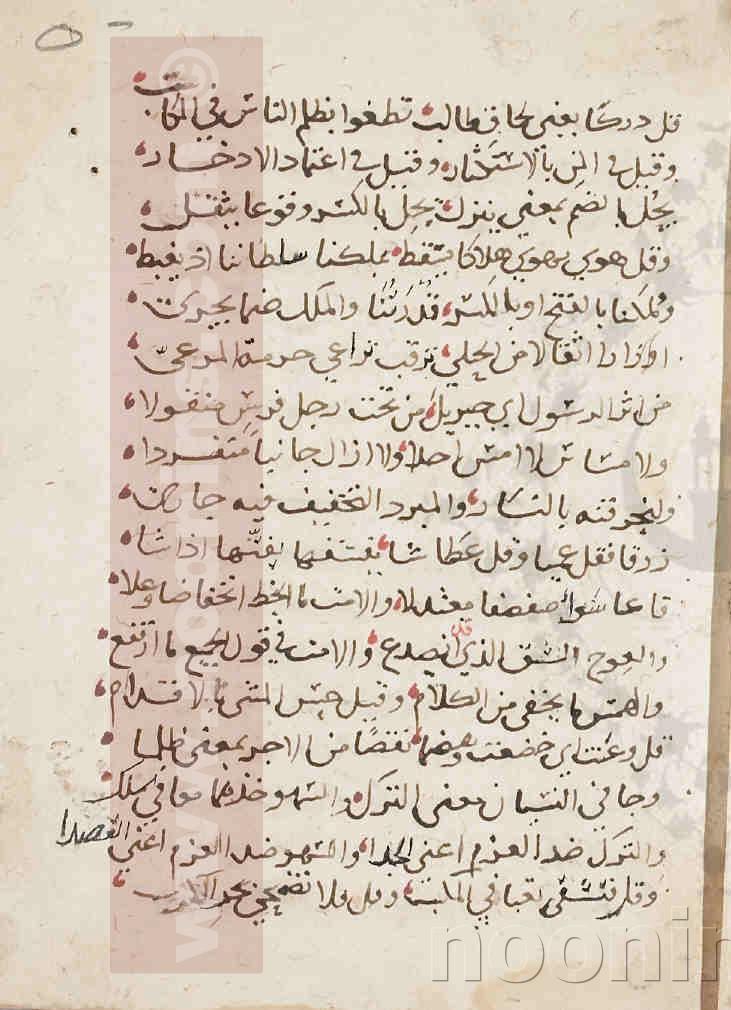 قل دركا بمعنى لحاق طالب تطغوا بظلم الناس في المكاسب
وقيل في المن بالاستكثار وقيل في اعتماد الادخار
يحُل بالضم بمعنى ينزل يحِل بالكسر وقوعا يثقل
وقل هوى يهوي هلاكا يسقط بملكنا سلطاننا اذ يغبط
وملكنا بالفتح او بالكسر قدرتنا والملك ضما يجري
اوزارا اثقالا من الحلي ترقب تراعي حرمة المرعي
من اثر الرسول اي جبريل من تحت رجل فرس منقولا
ولا مساس لا امس احدا ولا ازال جانيا منفردا
ولنحرقنه بالنار والمبرد التخفيف فيه جار
زرقا فقل عميا وقل عطاشا ينسفها يفتّها اذا شا
قاعا سواء صفصفا معتدلا والامت ما انحط انخفاضا وعلا
والعوج الشق الذي قد انصدع والامت في قول الجميع ما ارتفع
والهمس ما يخفى من الكلام وقيل حس المشي بالاقدام
قل وعنت اي خضعت وهضما نقصا من الاجر بمعنى ظلما
وجا في النسيان معنى الترك والسهو خذهما معا في سلك
والترك ضد العزم اعني الجدا والسهو ضد العزم اعني القصدا
وقل فتشقى تعبا في المكسب وقل ولا تضحى بحر
noonin